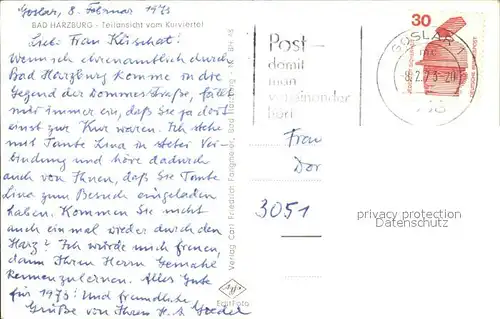 Goslar, 8. Februar 1973
BAD HARZBURG - Teilansicht vom Kurviertel
Liebe Frau Kürschat!
Wenn ich ehrenamtlich durch
Bad Harzburg komme in die
Gegend der Dommesstraße, fällt
mir immer ein, daß Sie ja dort
einst zur Kur waren. Ich stehe
mit Tante Lina in steter Ver-
bindung und höre dadurch
auch von Ihnen, daß Sie Tante
Lina zum Besuch eingeladen
haben. Kommen Sie nicht
auch einmal wieder durch den
Harz? Ich würde mich freuen,
dann Ihren Herrn Gemahl
kennenzulernen. Alles Gute
für 1973! Und freundliche
Grüße von Ihrem
Verlag Carl Friedrich Fangmeier, Bad Harzburg
Agfa
EchtFoto
Post-
damit
man
voneinander
hört
GOSLAR 1
8.2.73-20
30
DEUTSCHE BUNDESPOST
Frau
Dor
3051
privacy protection
Datenschutz